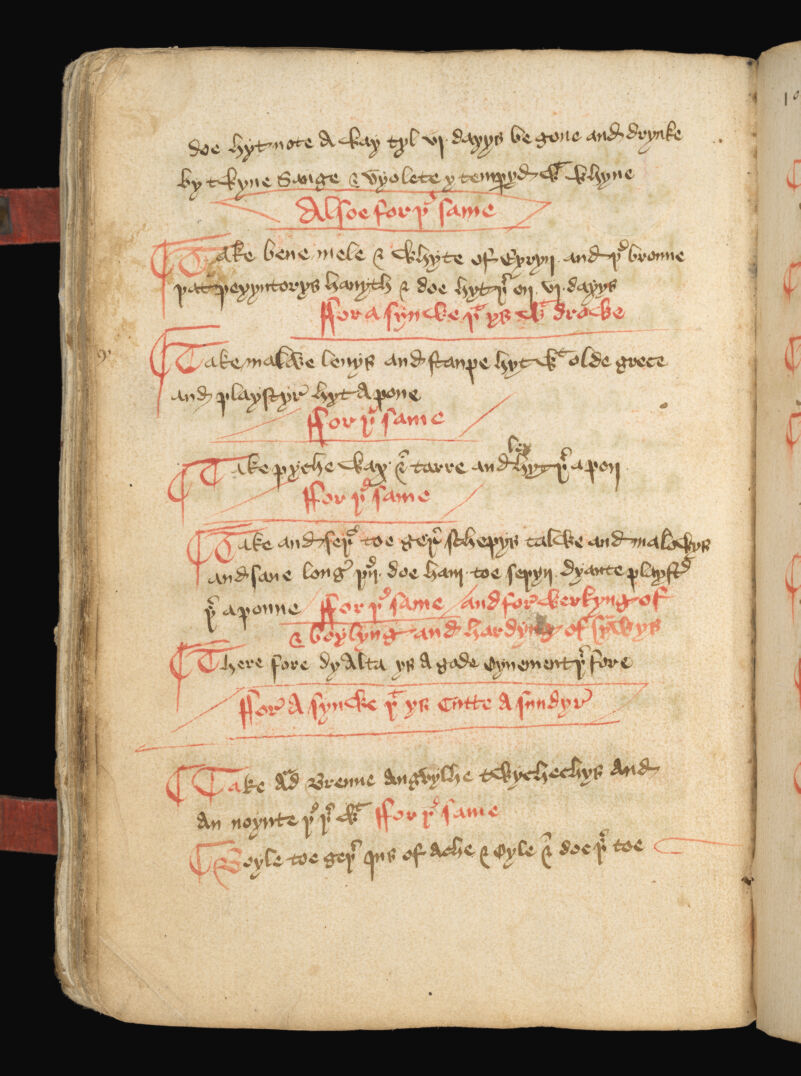 doe hyt note A way tyl vj dayys be gone and drynke
by twyne Sauge & vyolete y temp̲yd wͭ whyne
Alsoe for þͤ same
Take bene mele & whyte of Eyryn and þͭ bronne
þat peyyntorys hauyth & doe hyt þͬ on vj dayys
ffor a synwe þͭ ys wͭ drawe
Take malwe leuys and stanpe hyt wͭ olde grece
and playstyr hyt A pone
ffor þͤ same
Take pyche wax & tarre and ley hyt þͬ a pon
ffor þͤ same
Take and seþ toe geþ schepys talwe and malowys
and sane long þͬ doe ham toe sepyn playstͬ
þͬ a ponne ffor þͤ same and for werkyng of
& boylyng and hardyng of synwys
There fore dyAlta ys A gode Oynement þͬ fore
ffor A synwe þͭ ys Cutte A sundyr
Take Ad Brenne Angwylhe twychechys And
An noynte þͤ þͬ wͭ ffor þͤ same
Boyle toe geþͬ jus of Ache & Oyle & doe þͬ toe